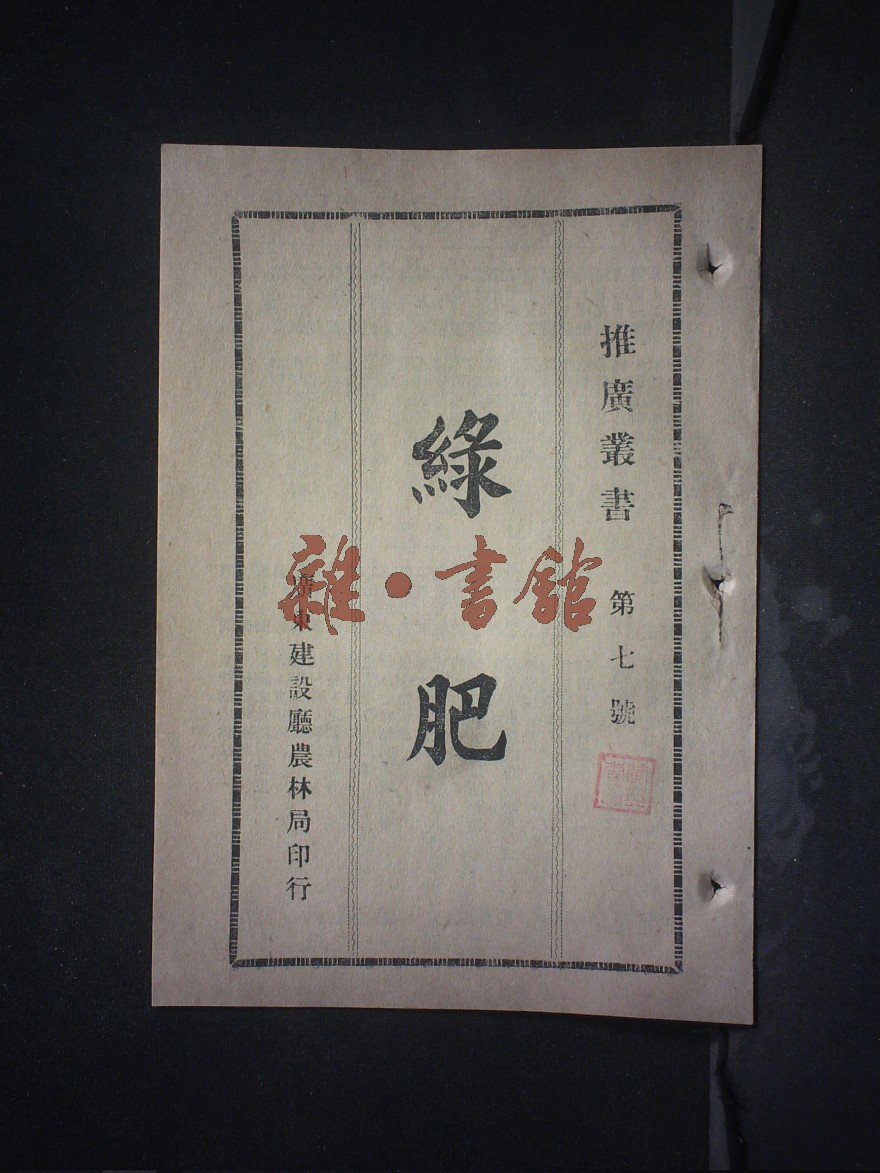 推廣叢書 第七號
綠肥
廣東建設廳農林局印行
雜·書舘